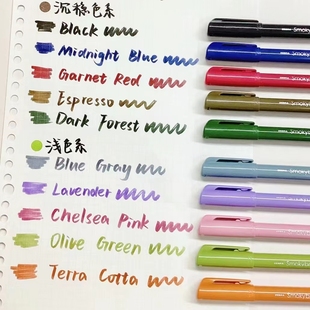 沉稳色系
Black
Midnight Blue
Garnet Red
Espresso
Dark Forest
浅色系
Blue Gray
Lavender
Chelsea Pink
Olive Green
Terra Cotta